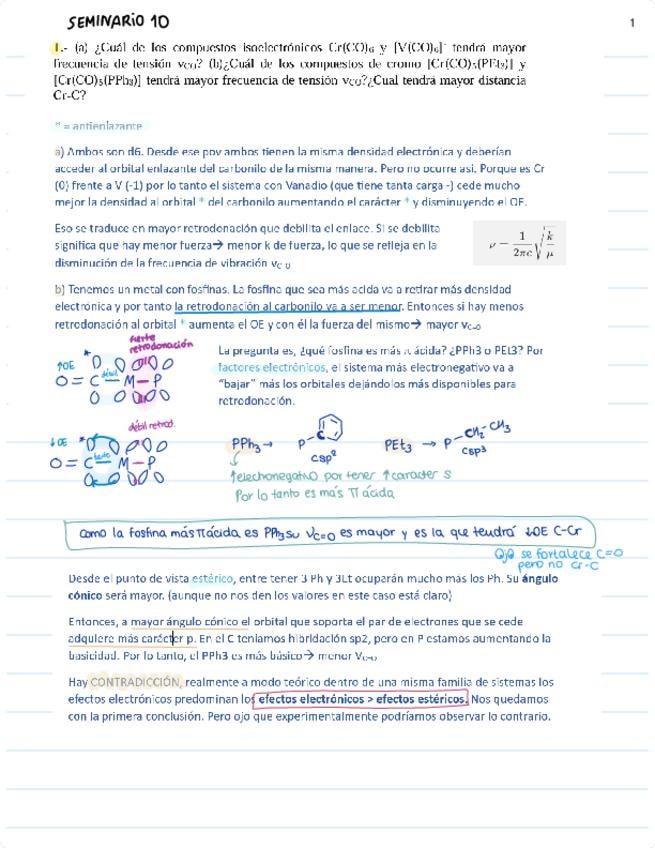 SEMINARIO 10
1
1.- (a) ¿Cuál de los compuestos isoelectrónicos Cr(CO)₆ y [V(CO)₆]⁻ tendrá mayor
frecuencia de tensión νCO? (b)¿Cuál de los compuestos de cromo [Cr(CO)₅(PEt₃)] y
[Cr(CO)₅(PPh₃)] tendrá mayor frecuencia de tensión νCO?¿Cual tendrá mayor distancia
Cr-C?
* = antienlazante
a) Ambos son d6. Desde ese pov ambos tienen la misma densidad electrónica y deberían
acceder al orbital enlazante del carbonilo de la misma manera. Pero no ocurre asi. Porque es Cr
(0) frente a V (-1) por lo tanto el sistema con Vanadio (que tiene tanta carga -) cede mucho
mejor la densidad al orbital * del carbonilo aumentando el carácter * y disminuyendo el OE.
Eso se traduce en mayor retrodonación que debilita el enlace. Si se debilita
significa que hay menor fuerza→ menor k de fuerza, lo que se refleja en la
disminución de la frecuencia de vibración νC-O
ν = 1/2πc √k/μ
b) Tenemos un metal con fosfinas. La fosfina que sea más acida va a retirar más densidad
electrónica y por tanto la retrodonación al carbonilo va a ser menor. Entonces si hay menos
retrodonación al orbital * aumenta el OE y con él la fuerza del mismo→ mayor νC-O
fuerte
retrodonación
↑OE *
débil
O = C — M — P
La pregunta es, ¿qué fosfina es más π ácida? ¿PPh3 o PEt3? Por
factores electrónicos, el sistema más electronegativo va a
"bajar" más los orbitales dejándolos más disponibles para
retrodonación.
débil retrod.
↓OE *
O = C — M — P
PPh₃ → P C
Csp²
PEt₃ → P - CH₂ - CH₃
Csp³
↑electronegativo por tener ↑caracter s
Por lo tanto es más π ácida
Como la fosfina más π ácida es PPh₃ su νC=O es mayor y es la que tendrá ↓OE C-Cr
Ojo se fortalece C=O
pero no Cr-C
Desde el punto de vista estérico, entre tener 3 Ph y 3Et ocuparán mucho más los Ph. Su ángulo
cónico será mayor. (aunque no nos den los valores en este caso está claro)
Entonces, a mayor ángulo cónico el orbital que soporta el par de electrones que se cede
adquiere más carácter p. En el C teníamos hibridación sp2, pero en P estamos aumentando la
basicidad. Por lo tanto, el PPh3 es más básico→ menor VC=O
Hay CONTRADICCIÓN, realmente a modo teórico dentro de una misma familia de sistemas los
efectos electrónicos predominan los efectos electrónicos > efectos estéricos. Nos quedamos
con la primera conclusión. Pero ojo que experimentalmente podríamos observar lo contrario.